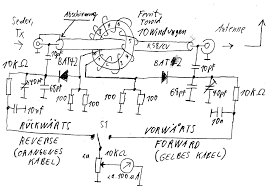 Sender,
Tx
Abschirmung
Ferrit-
Toroid
10 Windungen
Antenne
RG8/CU
10pf
BAT42
BAT42
10pf
10KΩ
40pf
68pf
100
100
100
100
68pf
40pf
10KΩ
10nf
10nf
RÜCKWÄRTS
REVERSE
(ORANGENES
KABEL)
S1
VORWÄRTS
FORWARD
(GELBES KABEL)
10KΩ
100uA